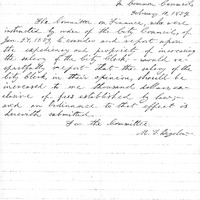 In Common Council,
February 10, 1879.
The Committee on Finance, who were
instructed by order of the City Council, of
Jan 27, 1879, to consider and report upon
the expediency and propriety of increasing
the salary of the City Clerk, would re-
spectfully report that the salary of the
City Clerk, in their opinion, should be
increased to one thousand dollars ex-
clusive of fees established by law,
and an ordinance to that effect is
herewith submitted.
For the Committee